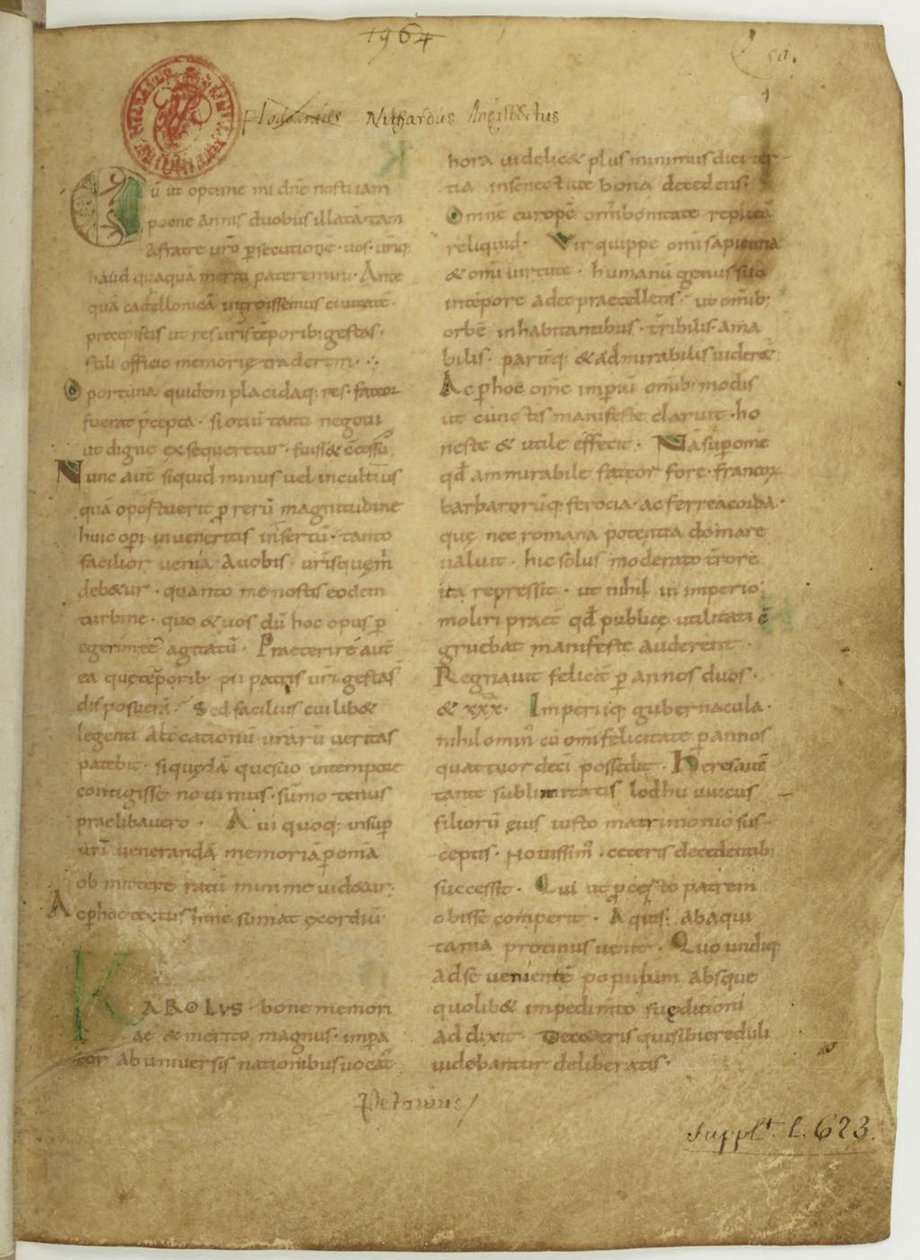 1964
58.
1
Nithardus Angilbertus
Cū ut optime mi dñe nosti iam
poene annis duobus illatā tam
a fratre uro ꝑsecutione · uos · uriq;
haud quaquā meriti pateremini · Ante
quā cadellonicā ingrossemus ciuitatē ·
precepistis ut res uris tēporib; gestas ·
stili officio memoriȩ traderem ·
Oportuna quidem placidaq; res · fateor
fuerat p̄cepta · si otiū tanti negotii
ut digne exsequeretur ·
Nunc aut siquid minus uel incultius
quā oportuerit p rerū magnitudine
huic opi inueneritis insertū · tanto
facilior uenia A uobis · urisque m̄
debetur · quanto me nostis eodem
turbine · quo & uos dū hoc opus ꝑ
egerim ee agitatū · Praeterire aut
ea que tēporib · pii patris uri gesta s̄
disposuerā · Sed facilius cui lib&
legenti Altercationū urarū ueritas
patebit · si quȩdā quȩ suo in tempore
contigisse nouimus · sūmo tenus
praelibauero · A ui quoq; insup
uri uenerandā memoriā p omia
obmittere ratū minime uidetur ·
Ac ꝑ hoc textus hinc sumat ȩxordiū
KAROLUS · bone memori
ae & merito magnus · impa
tor ab uniuersis nationibus uocat̄
hora uidelic& plus minimus diei ter
tia in senectute bona decedens ·
Omne europē omi bonitate repletā
reliquid · Vir quippe omi sapientia
& omi uirtute · humanū genus suo
in tēpore adeo praecellens · ut omib;
orbē inhabitantibus · tribilis · ama
bilis · pariq; & admirabilis uideret̄
Ac ꝑ hoc ome imperiū omib; modis
ut cunctis manifeste claruit · ho
neste & utile effecit · Nā sup ome
qđ ammirabile fateor fore · francorꝝ
barbarorūq; ferocia · ac ferrea corda ·
que nec romana potentia domare
ualuit · hic solus moderato trore
ita repressit · ut nihil in imperio
moliri praet̄ qđ publicȩ utilitati c̄
gruebat manifeste auderent ·
Regnauit felicit ꝑ annos duos ·
& xxx · Imperiiq; gubernacula ·
nihilomin̄ cū omi felicitate ꝑ annos
quattuor deci possedit · Heres aut̄
tante sublimitatis lodhuuuicus
filiorū eius iusto matrimonio sus
ceptis · Nouissim̄ · ceteris decedentib;
successit · Qui ut ꝑ certo patrem
obisse comperit · Aquis · ab aqui
tania protinus uenit · Quo undiq;
ad se uenientē populum absque
quolib& impedimto suȩ ditioni
addixit · De ceteris qui sibi creduli
uidebantur deliberatis ·
Petauius
Supplt. L. 623.